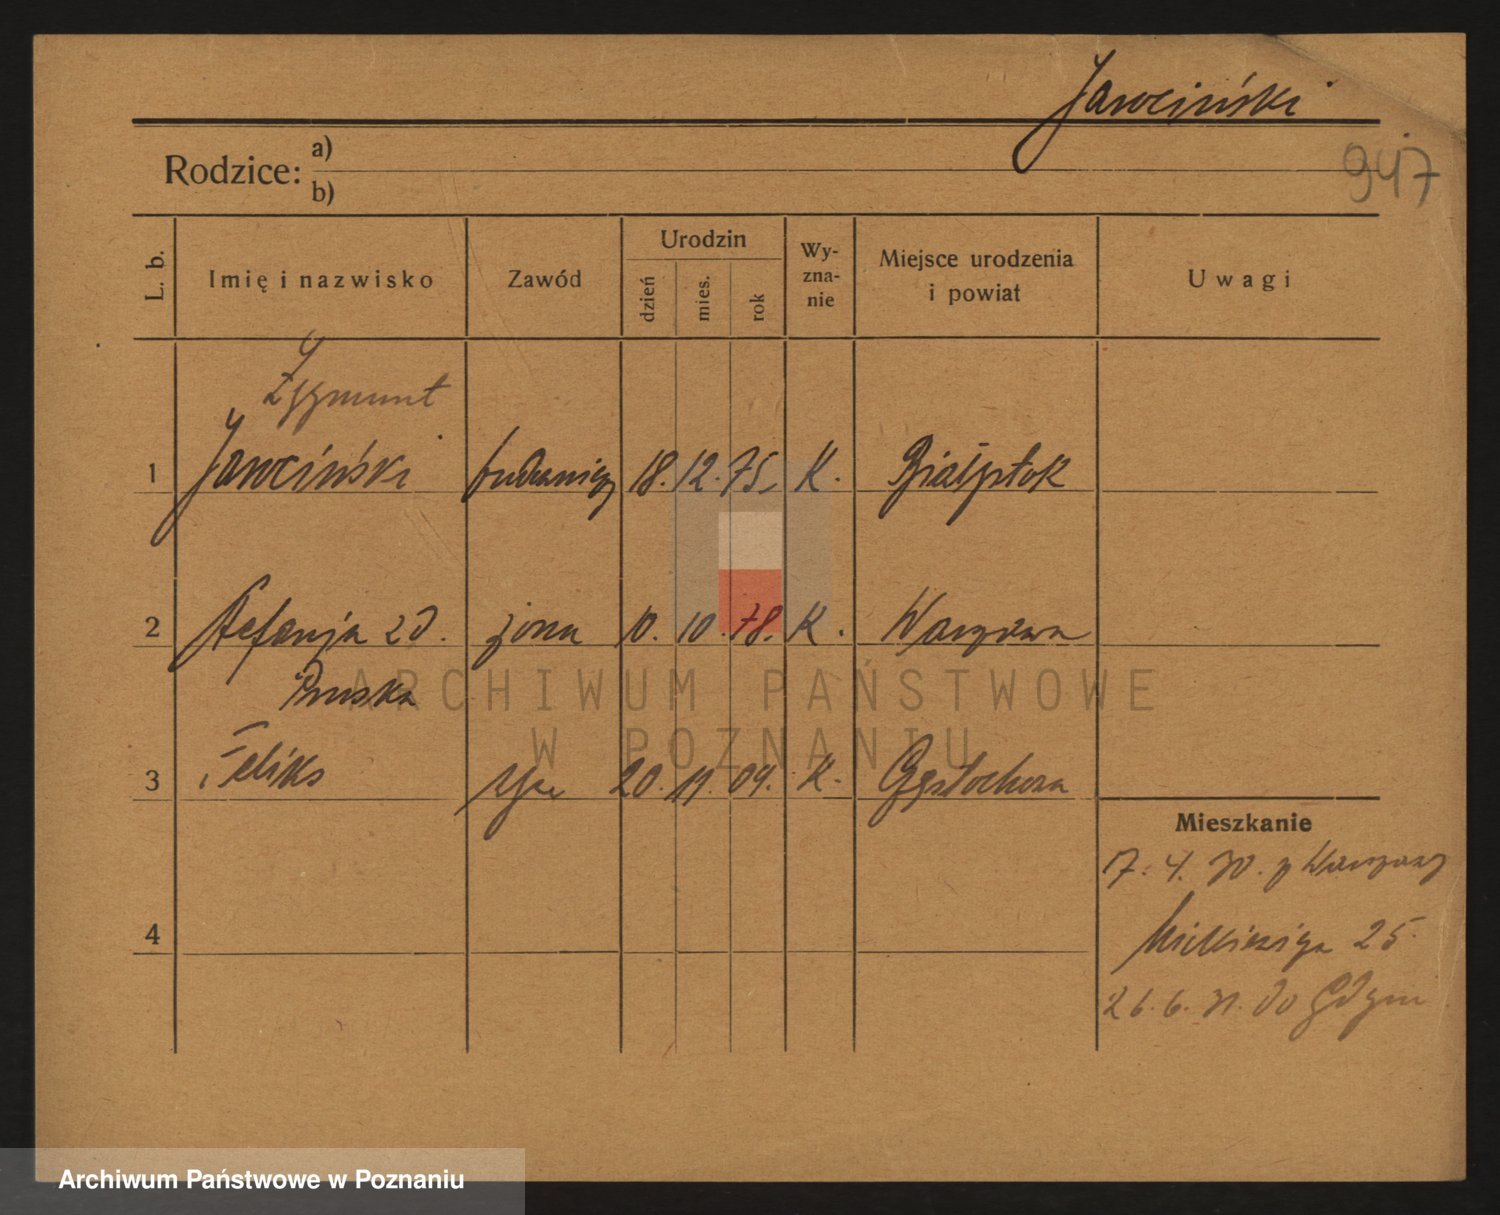 Jarociński
947
Rodzice: a)
b)
L. b. Imię i nazwisko Zawód Urodzin dzień mies. rok Wy-zna-nie Miejsce urodzenia i powiat Uwagi
Zygmunt
1 Jarociński 18. 12. 75. K. Białystok
2 Stefanja zd. żona 10. 10. 78. K. Warszawa
Pruska
ARCHIWUM PAŃSTWOWE
W POZNANIU
3 Feliks syn 20. 11. 09. K. Częstochowa
Mieszkanie
17. 4. 30. z Warszawy
4
Mickiewicza 25
26. 6. 31. do Gdyni
Archiwum Państwowe w Poznaniu